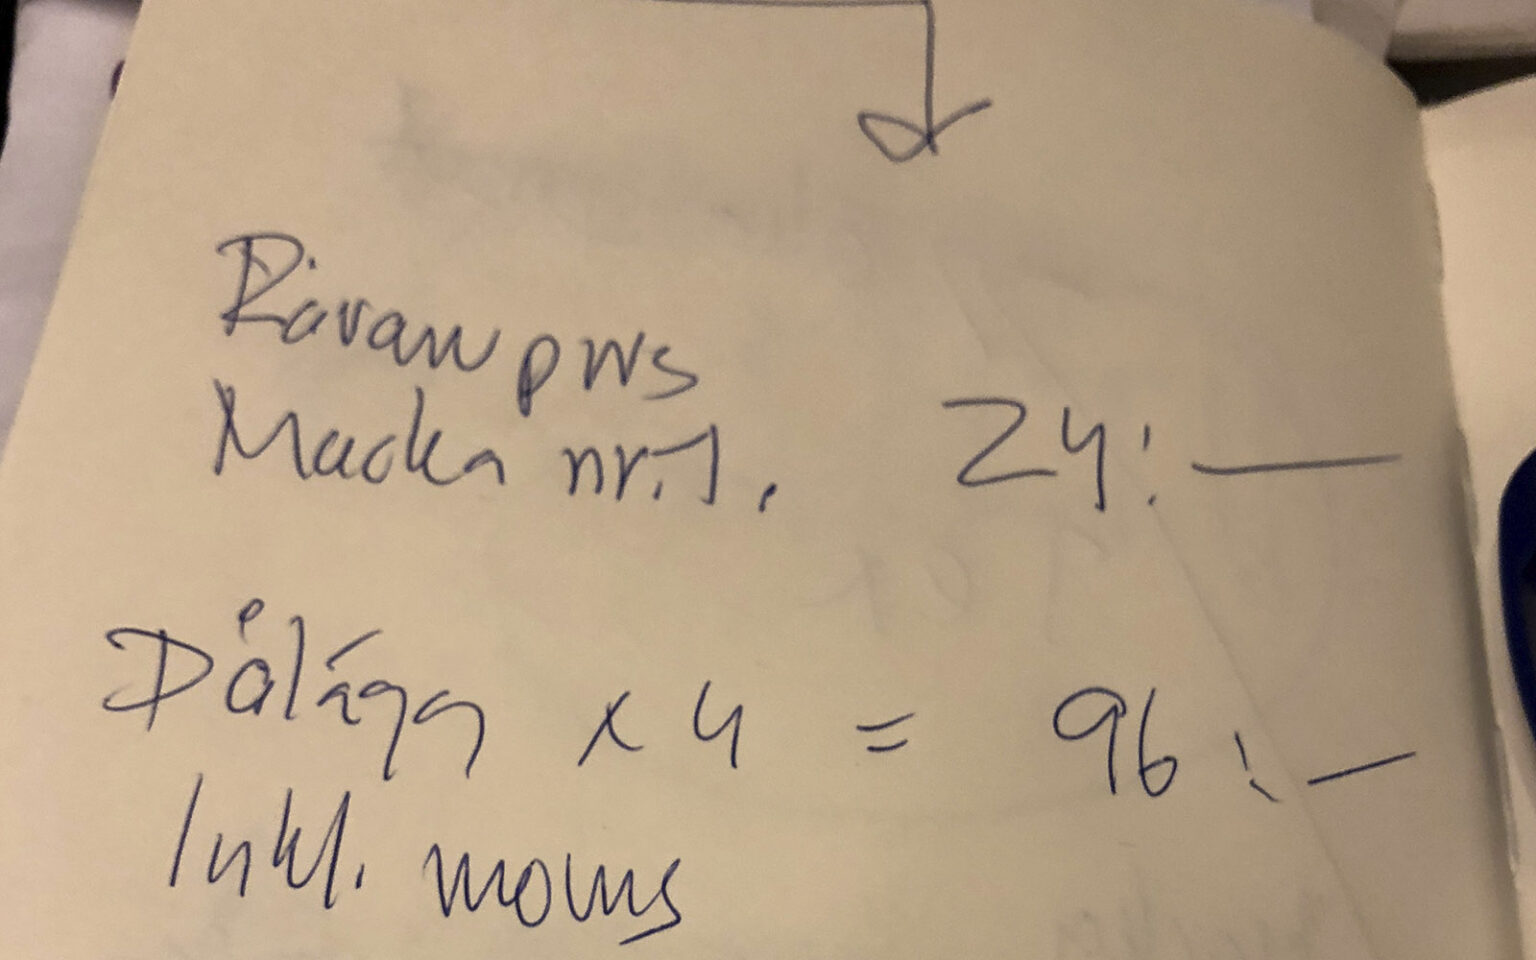 Råvarupris
Macka nr.1. 24:—
Pålägg x 4 = 96:—
Inkl. moms